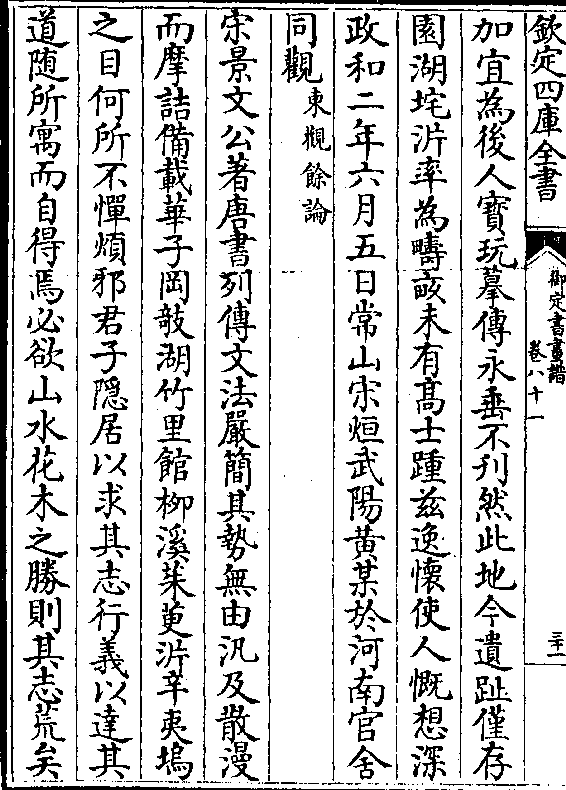 欽定四庫全書
御定書畫譜
卷八十一
三十一
加宜為後人寳玩摹傳永垂不刋然此地今遺趾僅存
園湖垞沜率為疇畝未有髙士踵兹逸懷使人慨想深
政和二年六月五日常山宋烜武陽黄某於河南官舍
同觀東觀餘論
宋景文公著唐書列傳文法嚴簡其勢無由汎及散漫
而摩詰備載華子岡敧湖竹里館柳溪茱萸沜辛夷塢
之目何所不憚煩邪君子隠居以求其志行義以達其
道隨所寓而自得焉必欲山水花木之勝則其志荒矣